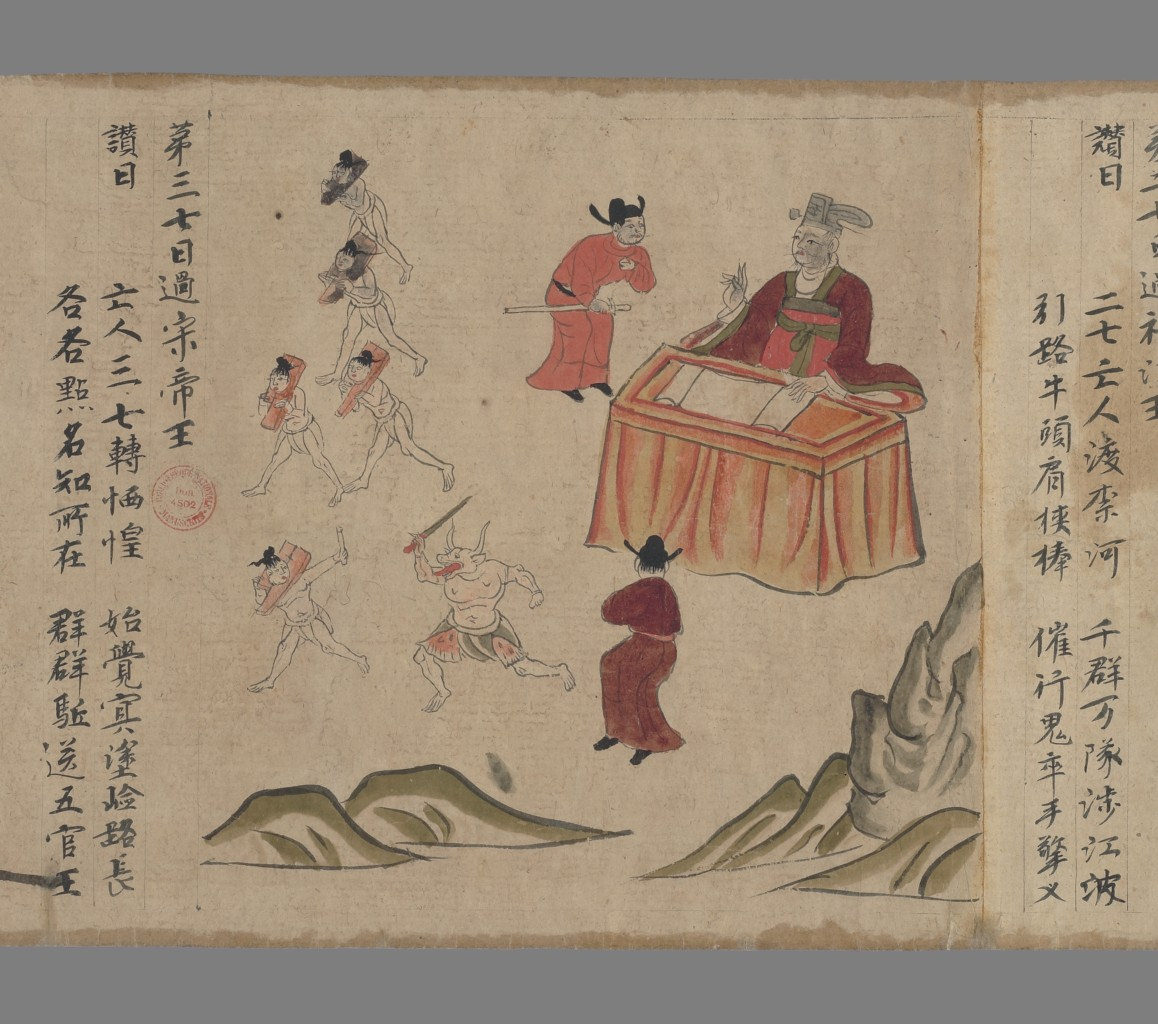 第二七日過初江王
讚曰 二七亡人渡柰河 千群万隊涉江波
引路牛頭肩俠棒 催行鬼卒手擎叉
第三七日過宋帝王
讚曰 亡人三七轉恓惶 始覺冥塗嶮路長
各各點名知所在 群群駈送五官王
Don
4502